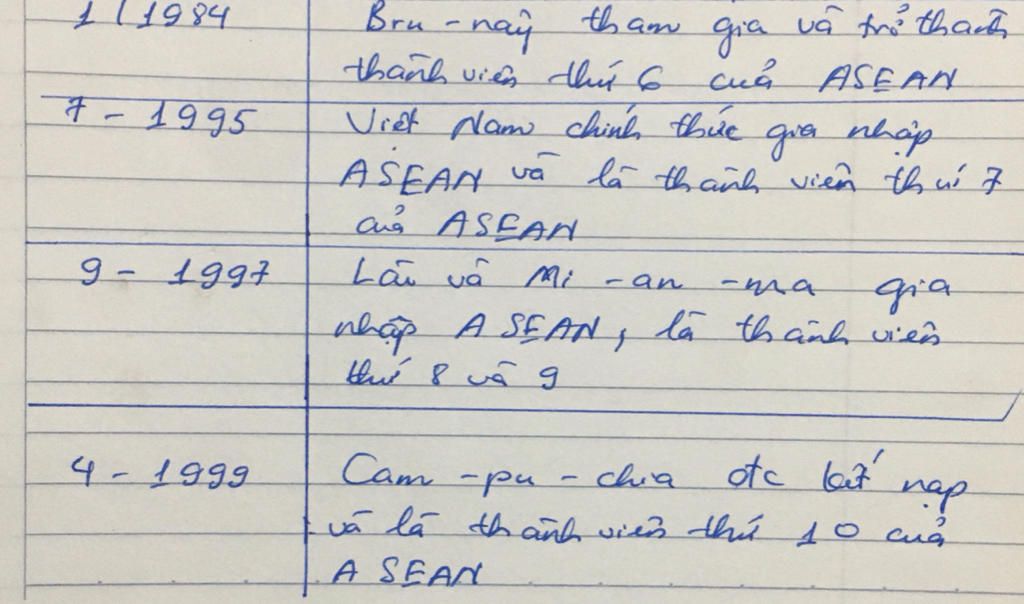 1 / 1984 Bru - nây tham gia và trở thành
thành viên thứ 6 của ASEAN
7 - 1995 Việt Nam chính thức gia nhập
ASEAN và là thành viên thứ 7
của ASEAN
9 - 1997 Lào và Mi - an - ma gia
nhập ASEAN, là thành viên
thứ 8 và 9
4 - 1999 Cam - pu - chia đc kết nạp
và là thành viên thứ 10 của
ASEAN